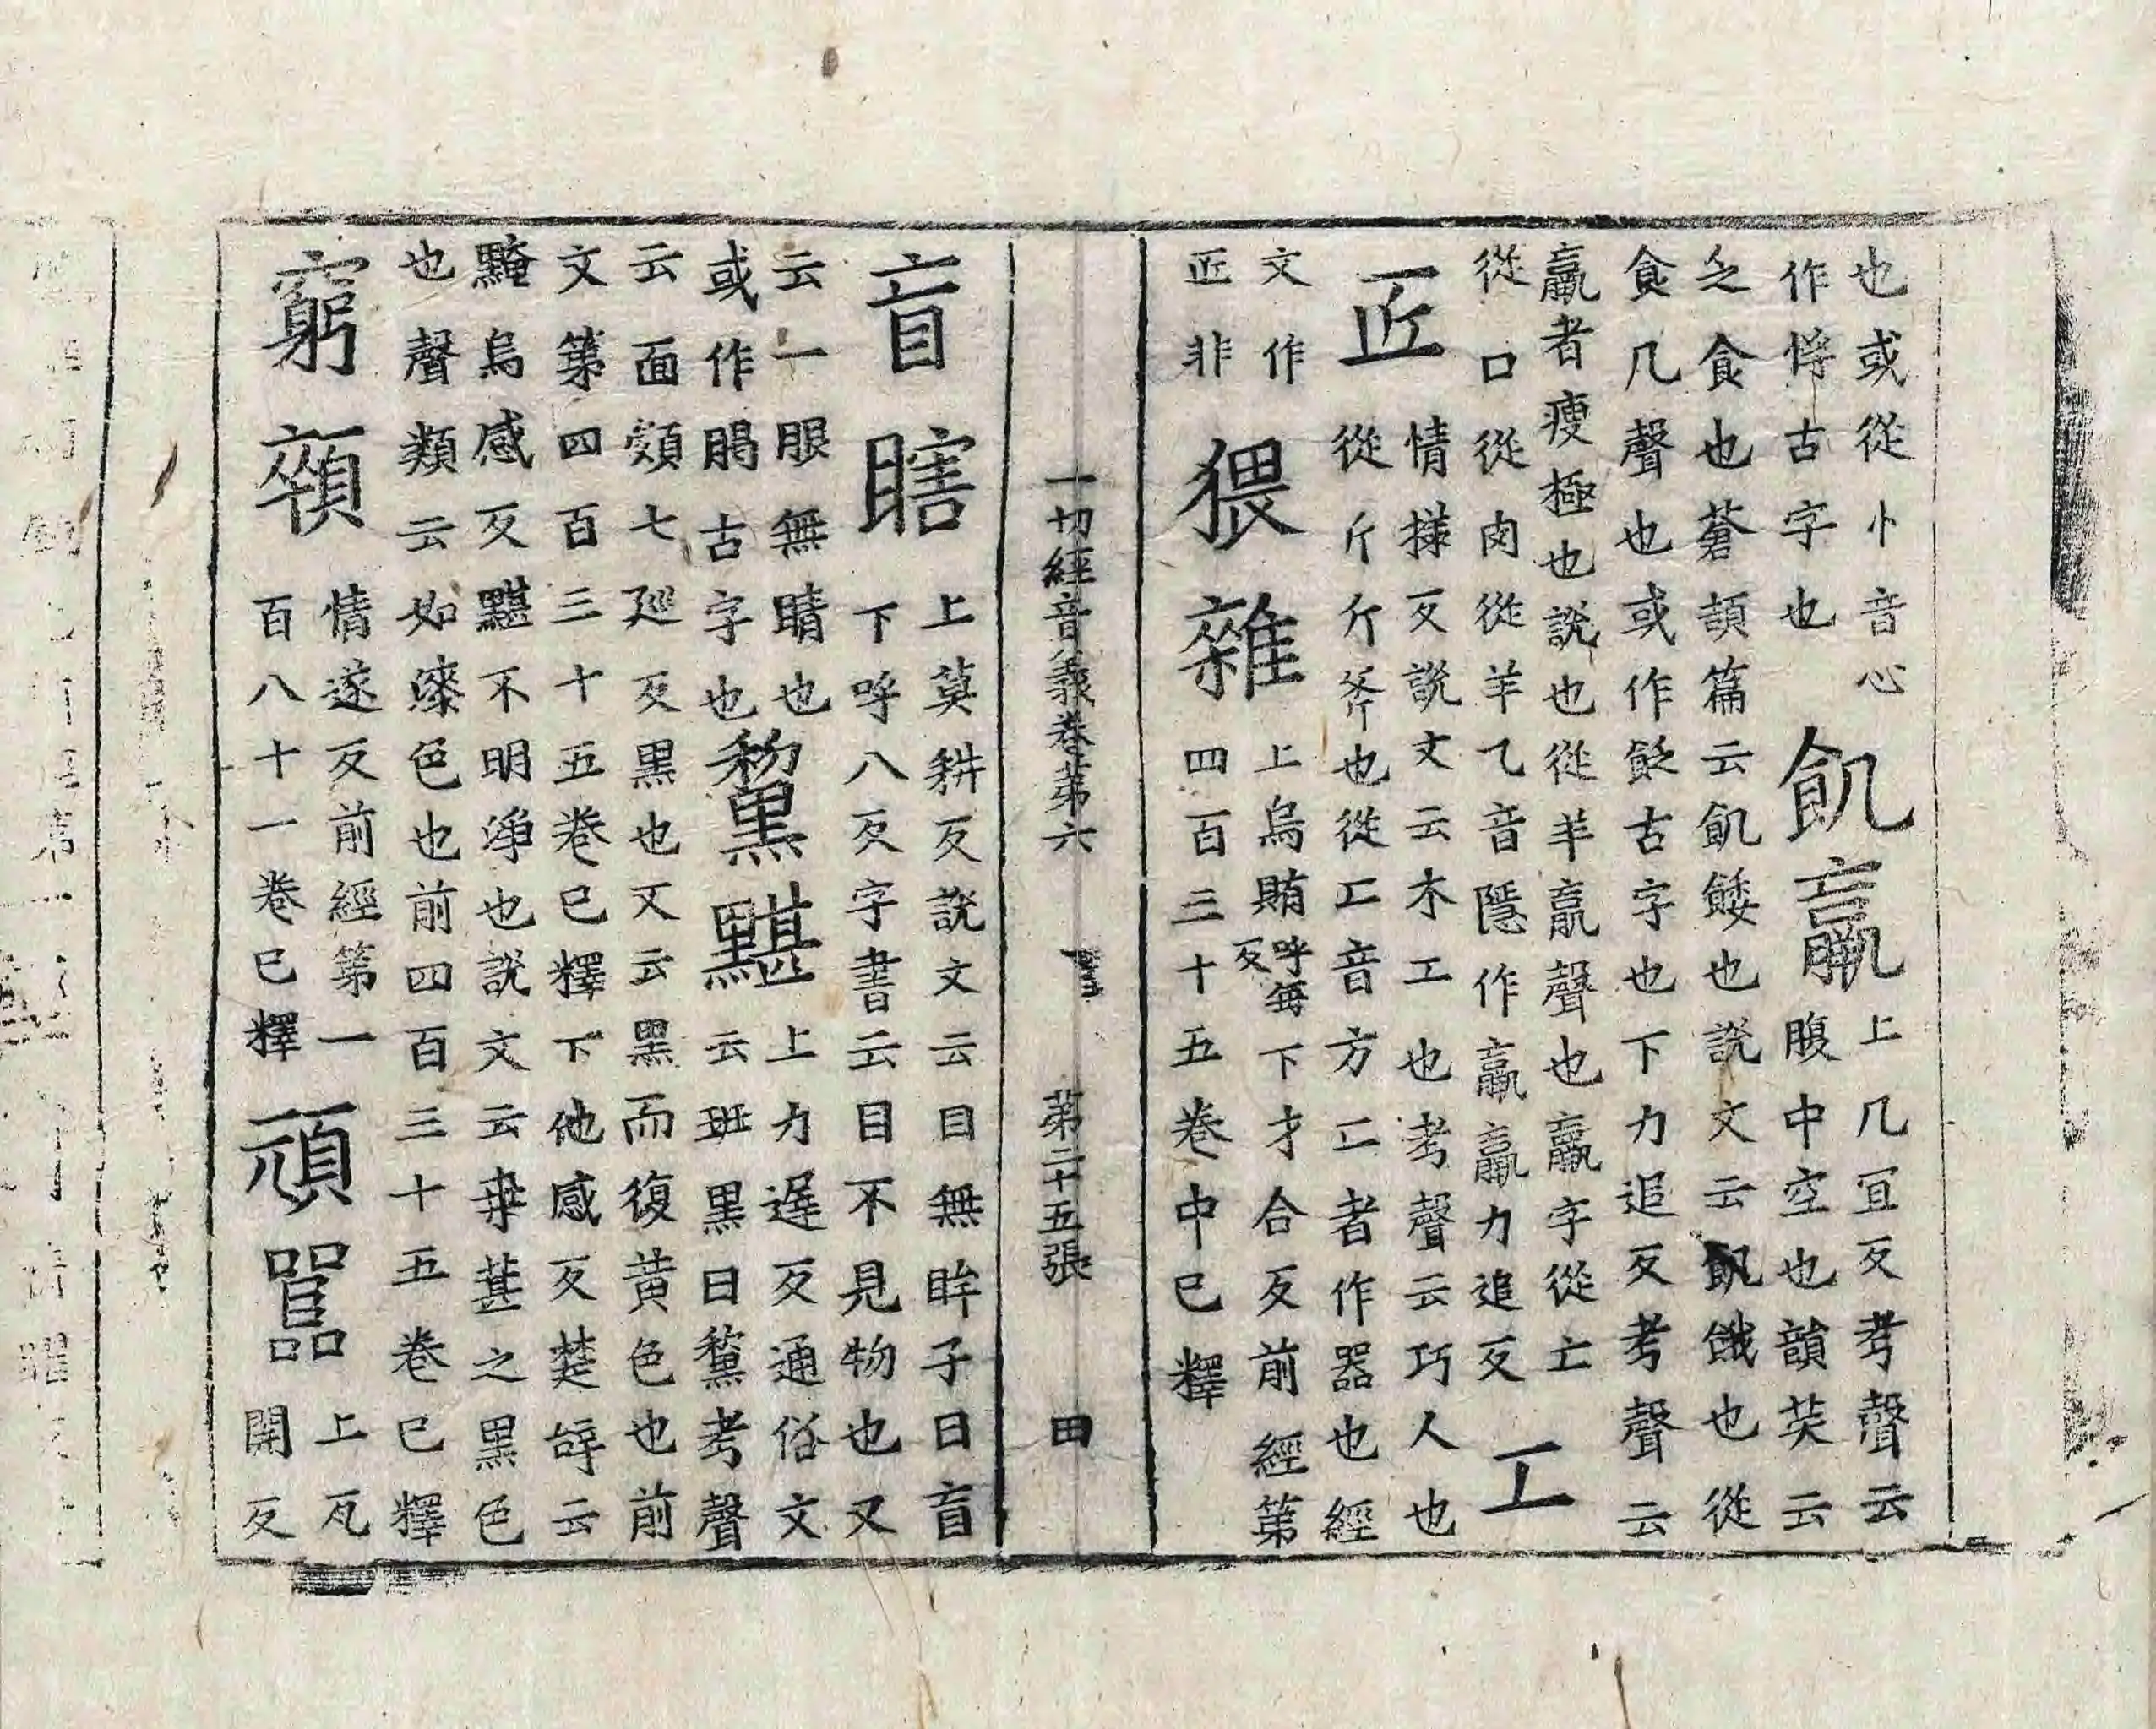 也或從忄音心
作惸古字也
飢羸
上几冝反考聲云
腹中空也韻英云
乏食也蒼頡篇云飢餧也說文云飢餓也從
食几聲也或作飷古字也下力追反考聲云
羸者瘦極也說也從羊羸聲也羸字從亡
從口從肉從羊乁音隱作羸羸力追反
工
匠
情㨾反說文云木工也考聲云巧人也
從斤斤斧也從匚音方匚者作器也經
文作
匠非
猥雜
上烏賄呼每反下才合反前經第
四百三十五卷中已釋
一切經音義卷第六
第二十五張
田
盲瞎
上莫耕反說文云目無眸子曰盲
下呼八反字書云目不見物也又
云一眼無睛也
或作䁍古字也
黧黮
上力遅反通俗文
云班黑曰黧考聲
云面皺七廵反黑也又云黑而復黄色也前
文第四百三十五卷已釋下他感反楚辝云
黤烏感反黮不明淨也說文云桒葚之黑色
也聲類云如漆色也前四百三十五卷已釋
窮顇
情遂反前經第一
百八十一卷已釋
頑嚚
上瓦
開反